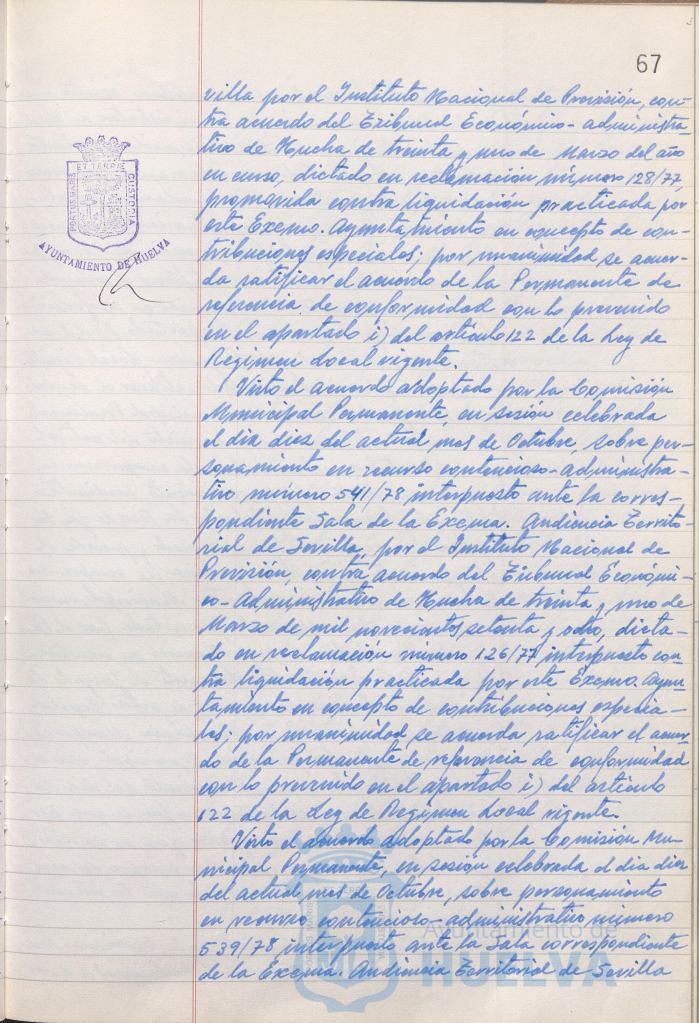 67
villa por el Instituto Nacional de Previsión, con-
tra acuerdo del Tribunal Económico-administra
tivo de Huelva de treinta y uno de Marzo del año
en curso, dictado en reclamación número 128/77,
promovida contra liquidación practicada por
este Excmo. Ayuntamiento en concepto de con-
tribuciones especiales; por unanimidad se acuer-
da ratificar el acuerdo de la Permanente de
referencia de conformidad con lo prevenido
en el apartado i) del artículo 122 de la Ley de
Régimen Local vigente.
Visto el acuerdo adoptado por la Comisión
Municipal Permanente, en sesión celebrada
el día diez del actual mes de Octubre, sobre per-
sonamiento en recurso contencioso-administra-
tivo número 541/78 interpuesto ante la corres-
pondiente Sala de la Excma. Audiencia Territo-
rial de Sevilla, por el Instituto Nacional de
Previsión, contra acuerdo del Tribunal Económi-
co-Administrativo de Huelva de treinta y uno de
Marzo de mil novecientos setenta y ocho, dicta-
do en reclamación número 126/77 interpuesto con
tra liquidación practicada por este Excmo. Ayun-
tamiento en concepto de contribuciones especia-
les; por unanimidad se acuerda ratificar el acuer-
do de la Permanente de referencia de conformidad
con lo prevenido en el apartado i) del artículo
122 de la Ley de Régimen Local vigente.
Visto el acuerdo adoptado por la Comisión Mu-
nicipal Permanente, en sesión celebrada el día diez
del actual mes de Octubre, sobre personamiento
en recurso contencioso-administrativo número
539/78 interpuesto ante la Sala correspondiente
de la Excma. Audiencia Territorial de Sevilla
PORTUS MARIS ET TERRAE CUSTODIA
AYUNTAMIENTO DE HUELVA
Ayuntamiento de
HUELVA